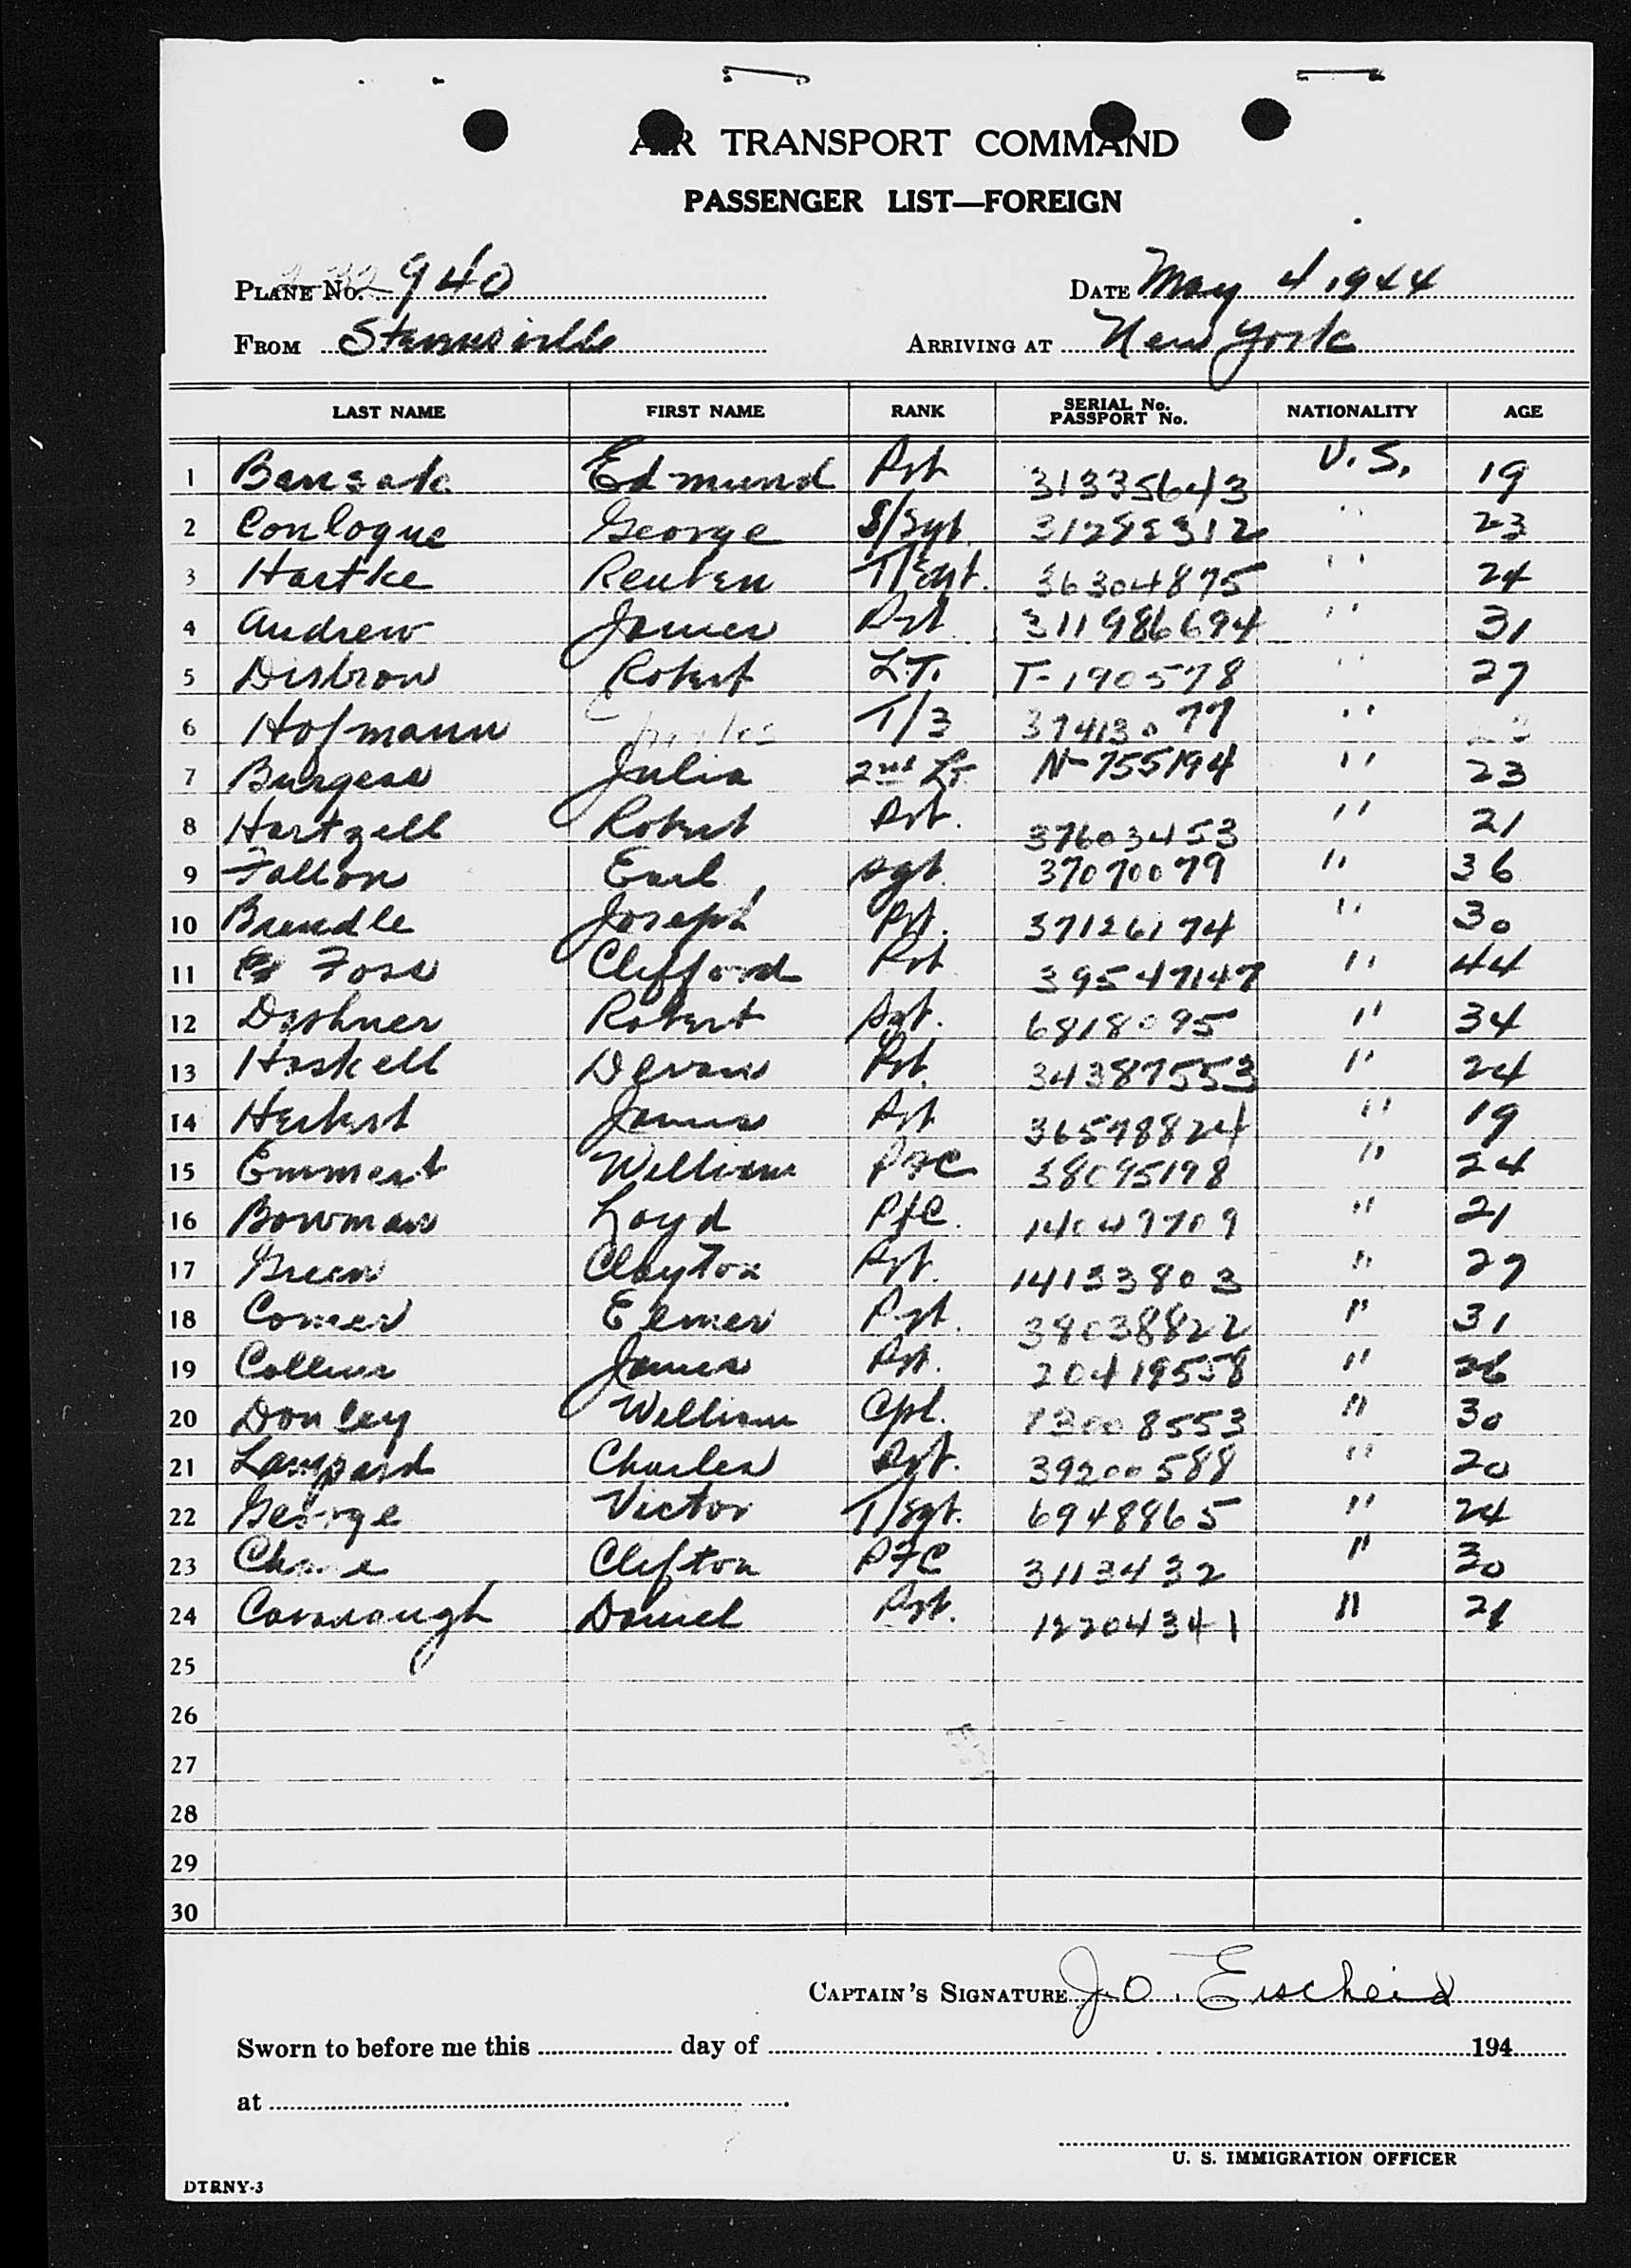 AIR TRANSPORT COMMAND
PASSENGER LIST—FOREIGN
PLANE No. 940 DATE May 4, 1944
FROM ARRIVING AT New York
LAST NAME FIRST NAME RANK SERIAL No. PASSPORT No. NATIONALITY AGE
1 Edmund Pvt 31335643 U.S. 19
2 Conlogue George S/Sgt. " 23
3 Hartke Reuben T/Sgt. 36304875 " 24
4 Andrew James Pvt 311986694 " 31
5 Disbrow Robert LT. T-190578 " 27
6 Hofmann T/3 37413077 "
7 Burgess Julia 2nd Lt. N-755194 " 23
8 Hartzell Robert Pvt. 37603453 " 21
9 Fallon Earl Sgt. 37070079 " 36
10 Brendle Joseph Pvt. 37126174 " 30
11 Foss Clifford Pvt 39547147 " 44
12 Dashner Robert Sgt. 6818095 " 34
13 Haskell Pvt. 34387553 " 24
14 Herbert James Pvt 36598824 " 19
15 Emmert William PFC 38095198 " 24
16 Bowman Loyd PFC. 14049709 " 21
17 Green Clayton Pvt. 14133803 " 27
18 Comer Elmer Pvt. 38038822 " 31
19 Collins James Pvt. 20419558 " 26
20 Donley William Cpl. 13008553 " 30
21 Lampard Charles Pvt. 39200588 " 20
22 George Victor T/Sgt. 6948865 " 24
23 Chase Clifton PFC 3113432 " 30
24 Cavanaugh Daniel Pvt. 12204341 " 21
25
26
27
28
29
30
CAPTAIN'S SIGNATURE J. O. Erscheid
Sworn to before me this day of 194
at
U. S. IMMIGRATION OFFICER
DTRNY-3